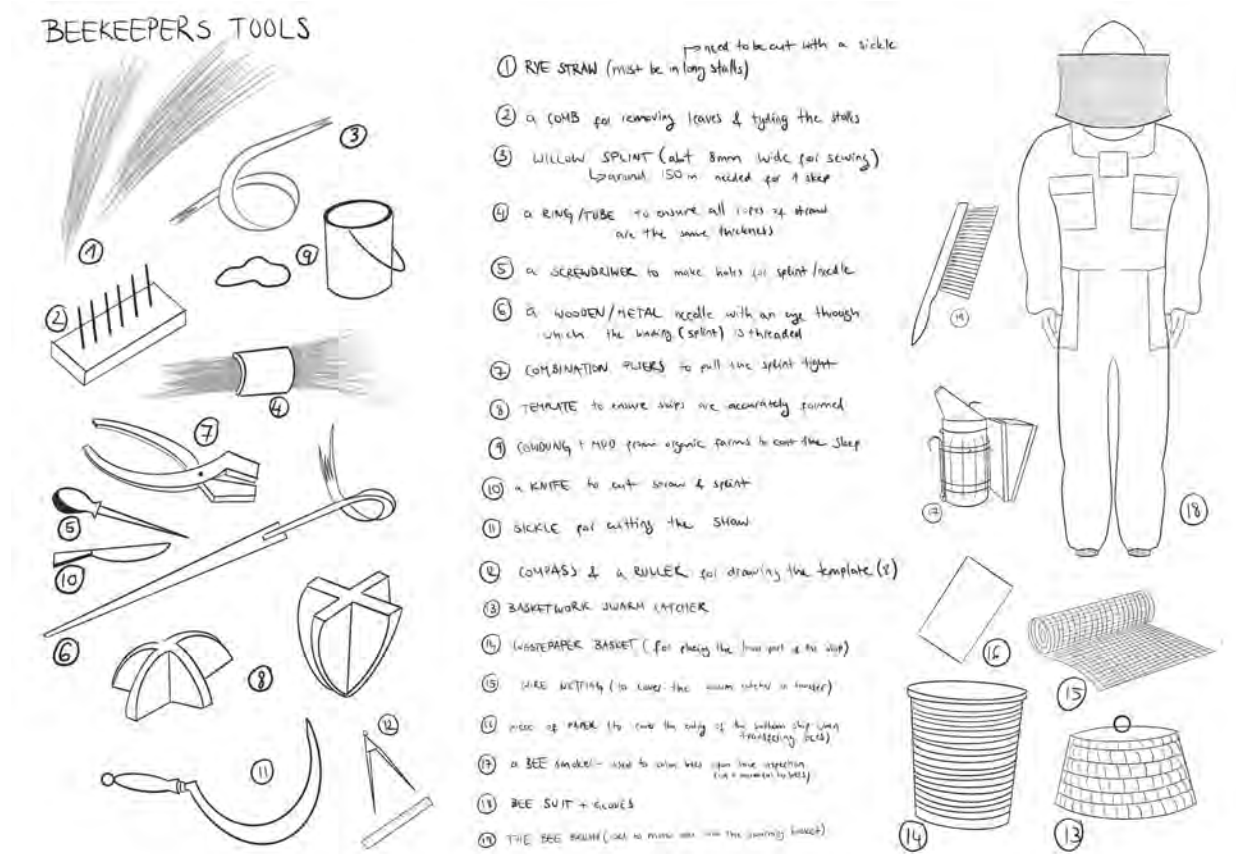 BEEKEEPERS TOOLS
need to be cut with a sickle
① RYE STRAW (must be in long stalls)
② a COMB for removing leaves & tyding the stalls
③ WILLOW SPLINT (abt 8mm wide for sewing)
around 150 m needed for 1 skep
④ a RING/TUBE to ensure all ropes of straw
are the same thickness
⑤ a SCREWDRIWER to make holes for splint/needle
⑥ a WOODEN/METAL needle with an eye through
which the binding (splint) is threaded
⑦ COMBINATION PLIERS to pull the splint tight
⑧ TEMPLATE to ensure skeps are accurately formed
⑨ COWDUNG + MUD from organic farms to coat the skep
⑩ a KNIFE to cut straw & splint
⑪ SICKLE for cutting the straw
⑫ COMPASS & a RULLER for drawing the template (8)
⑬ BASKETWORK SWARM CATCHER
⑭ WASTEPAPER BASKET (for placing the part of the skep)
⑮ WIRE NETTING (to cover the swarm catcher in transfer)
piece of PAPER (to cover the entry of the bottom skep when
transfering bees)
⑰ a BEE smoker - used to calm bees upon hive inspection
⑱ BEE SUIT + GLOVES
⑲ THE BEE BRUSH (used to move bees into the basket)
3
9
1
2
4
7
5
10
6
8
12
11
19
17
18
16
15
14
13